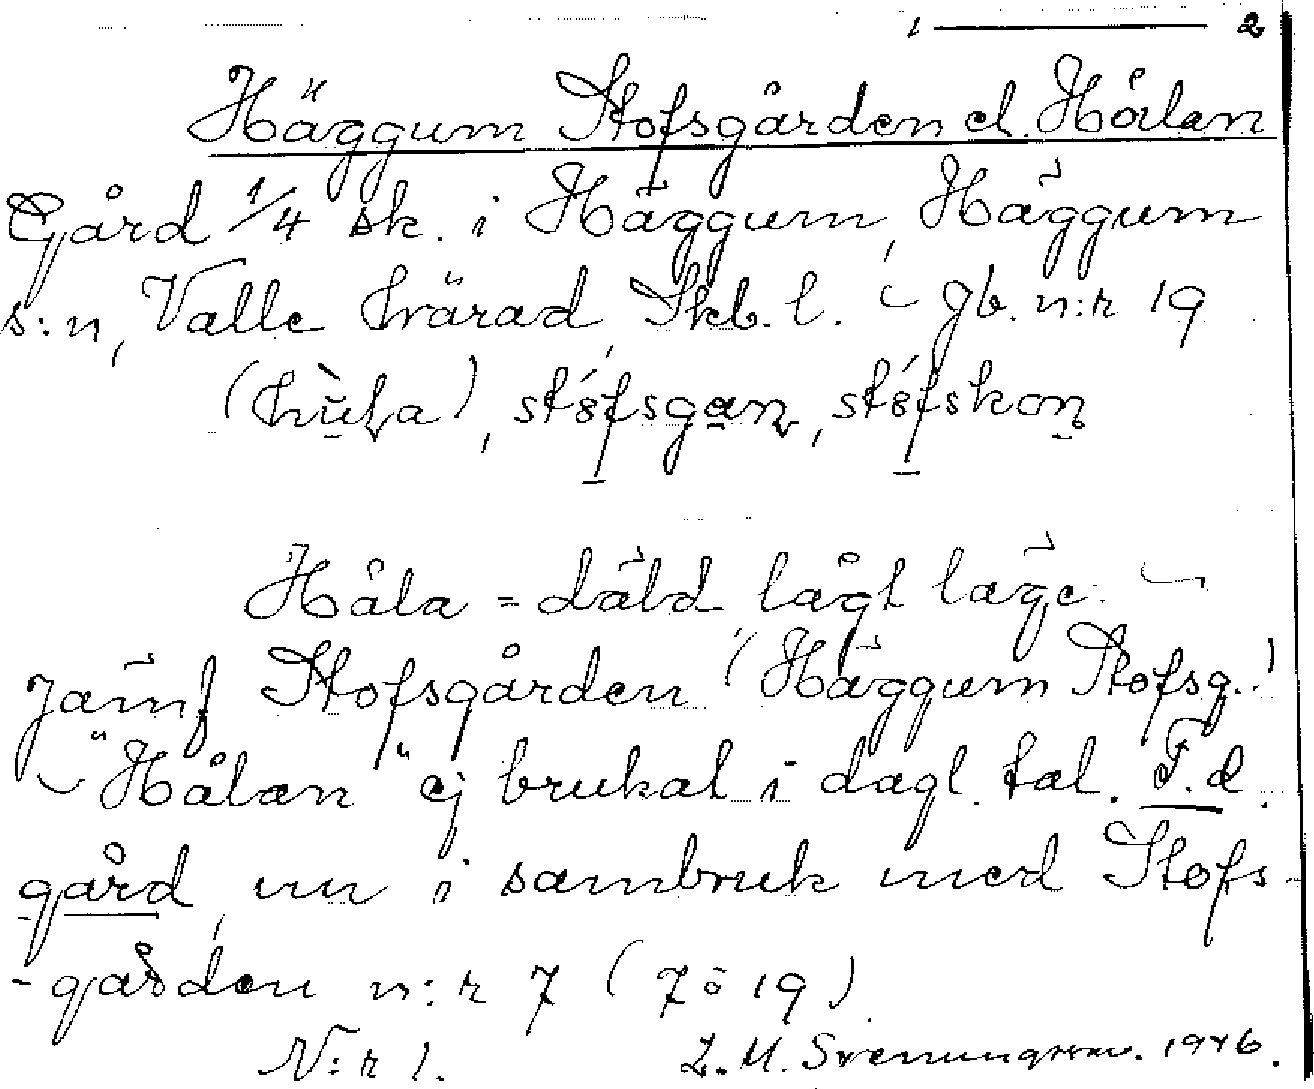 1 — 2
Häggum Stofsgården el. Hålan
Gård 1/4 sk. i Häggum, Häggum
s:n, Valle härad, Skb. l. – jb. n:r 19
Håla = däld lågt läge. –
Jämf Stofsgården (Häggum Stofsg.)
– "Hålan" ej brukat i dagl. tal. F.d.
gård, nu i sambruk med Stofs-
-gården n:r 7 (7 o 19)
N:r 1. L. M. Svenungsson. 1946.